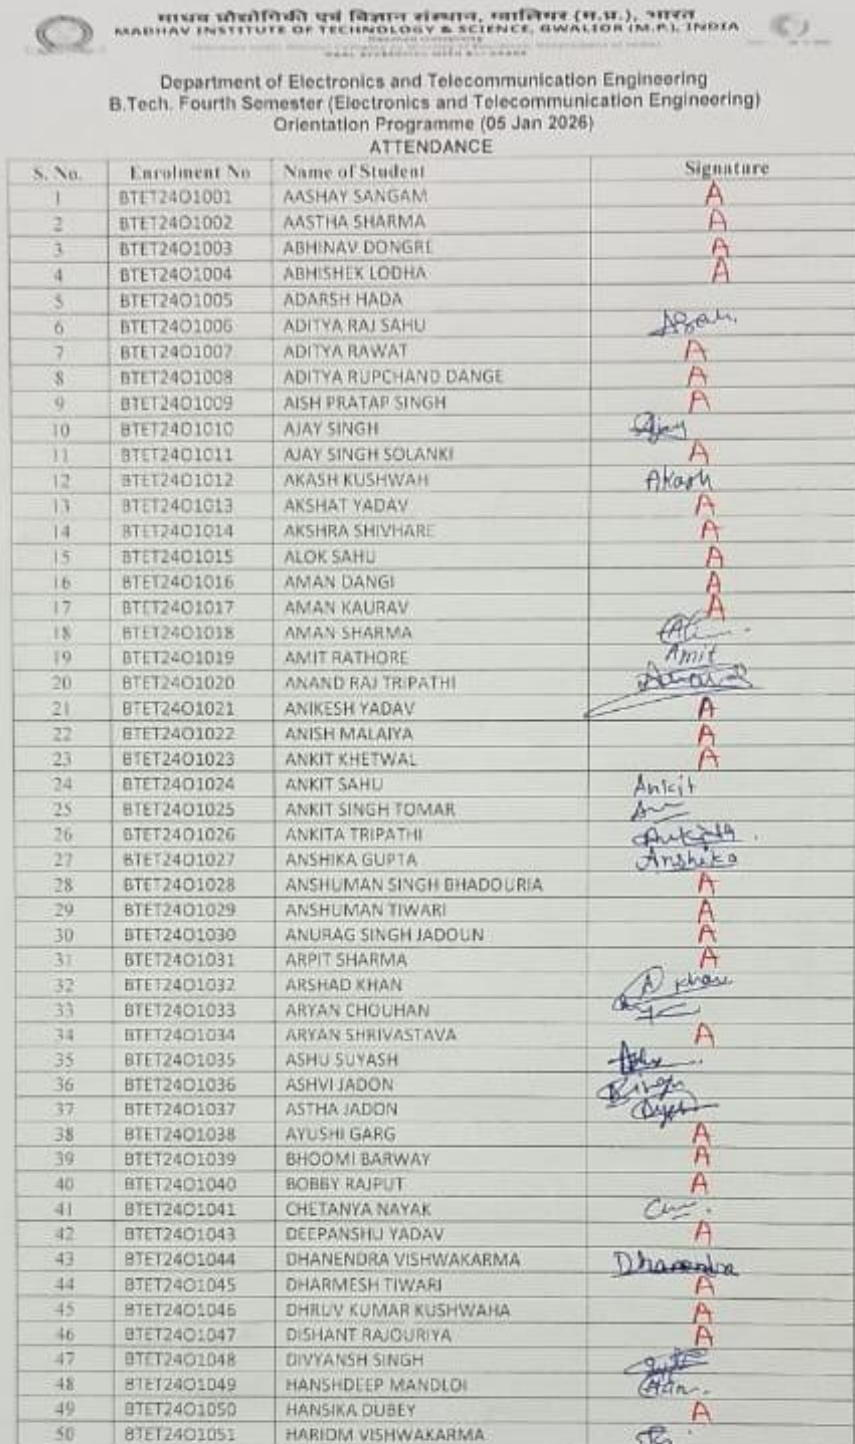 माधव प्रौद्योगिकी एवं विज्ञान संस्थान, ग्वालियर (म.प्र.), भारत
MADHAV INSTITUTE OF TECHNOLOGY & SCIENCE, GWALIOR (M.P.), INDIA
Department of Electronics and Telecommunication Engineering
B.Tech. Fourth Semester (Electronics and Telecommunication Engineering)
Orientation Programme (05 Jan 2026)
ATTENDANCE
S. No. Enrolment No Name of Student Signature
1 BTET24O1001 AASHAY SANGAM A
2 BTET24O1002 AASTHA SHARMA A
3 BTET24O1003 ABHINAV DONGRE A
4 BTET24O1004 ABHISHEK LODHA A
5 BTET24O1005 ADARSH HADA
6 BTET24O1006 ADITYA RAJ SAHU
7 BTET24O1007 ADITYA RAWAT A
8 BTET24O1008 ADITYA RUPCHAND DANGE A
9 BTET24O1009 AISH PRATAP SINGH A
10 BTET24O1010 AJAY SINGH Ajay
11 BTET24O1011 AJAY SINGH SOLANKI A
12 BTET24O1012 AKASH KUSHWAH Akash
13 BTET24O1013 AKSHAT YADAV A
14 BTET24O1014 AKSHRA SHIVHARE A
15 BTET24O1015 ALOK SAHU A
16 BTET24O1016 AMAN DANGI A
17 BTET24O1017 AMAN KAURAV A
18 BTET24O1018 AMAN SHARMA
19 BTET24O1019 AMIT RATHORE Amit
20 BTET24O1020 ANAND RAJ TRIPATHI
21 BTET24O1021 ANIKESH YADAV A
22 BTET24O1022 ANISH MALAIYA A
23 BTET24O1023 ANKIT KHETWAL A
24 BTET24O1024 ANKIT SAHU Ankit
25 BTET24O1025 ANKIT SINGH TOMAR
26 BTET24O1026 ANKITA TRIPATHI Ankita
27 BTET24O1027 ANSHIKA GUPTA Anshika
28 BTET24O1028 ANSHUMAN SINGH BHADOURIA A
29 BTET24O1029 ANSHUMAN TIWARI A
30 BTET24O1030 ANURAG SINGH JADOUN A
31 BTET24O1031 ARPIT SHARMA A
32 BTET24O1032 ARSHAD KHAN A Khan
33 BTET24O1033 ARYAN CHOUHAN
34 BTET24O1034 ARYAN SHRIVASTAVA A
35 BTET24O1035 ASHU SUYASH
36 BTET24O1036 ASHVI JADON
37 BTET24O1037 ASTHA JADON
38 BTET24O1038 AYUSHI GARG A
39 BTET24O1039 BHOOMI BARWAY A
40 BTET24O1040 BOBBY RAJPUT A
41 BTET24O1041 CHETANYA NAYAK
42 BTET24O1043 DEEPANSHU YADAV A
43 BTET24O1044 DHANENDRA VISHWAKARMA Dhanendra
44 BTET24O1045 DHARMESH TIWARI A
45 BTET24O1046 DHRUV KUMAR KUSHWAHA A
46 BTET24O1047 DISHANT RAJOURIYA A
47 BTET24O1048 DIVYANSH SINGH
48 BTET24O1049 HANSHDEEP MANDLOI
49 BTET24O1050 HANSIKA DUBEY A
50 BTET24O1051 HARIOM VISHWAKARMA